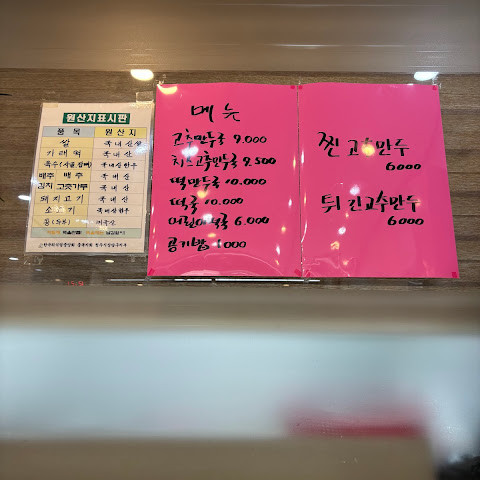 원산지표시판
품목 원산지
쌀 국내산
가래떡 국내산
육수(사골,잡뼈) 국내산한우
배추 배추 국내산
김치 고춧가루 국내산
돼지고기 국내산
소고기 국내산한우
콩(두부)
메뉴
고추만두국 9.000
치즈고추만두국 9.500
떡만두국 10.000
떡국 10.000
어린이떡국 6.000
공기밥 1000
찐고추만두
6000
튀긴고추만두
6000